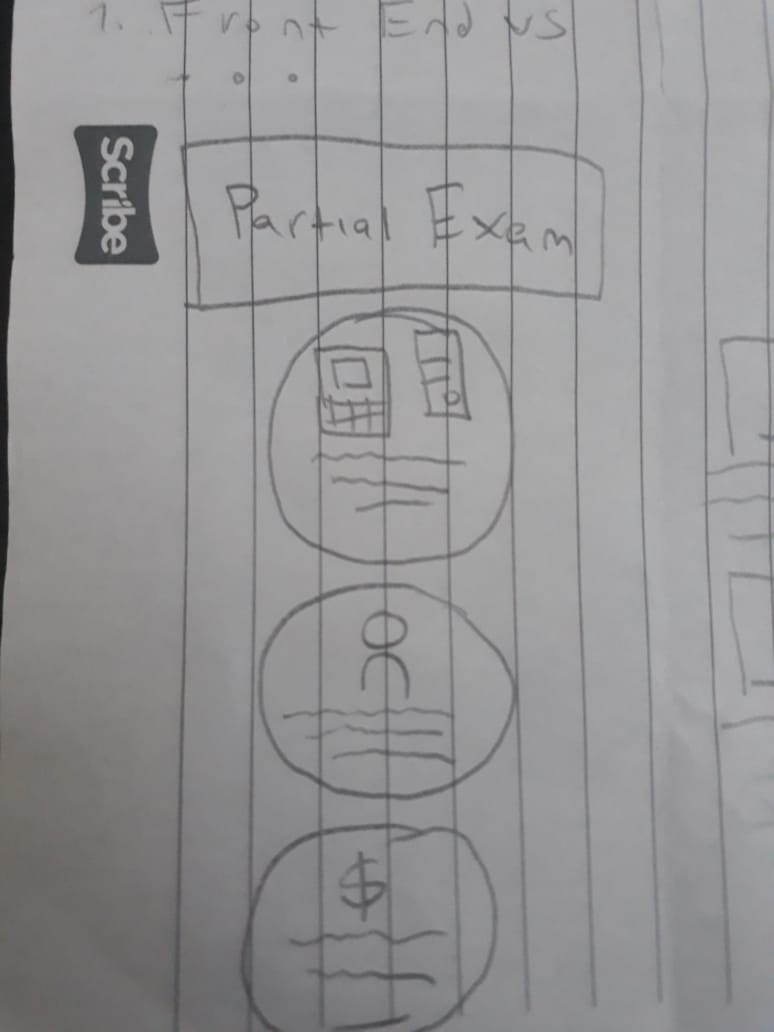 1. Front End vs
Scribe
Partial Exam
$